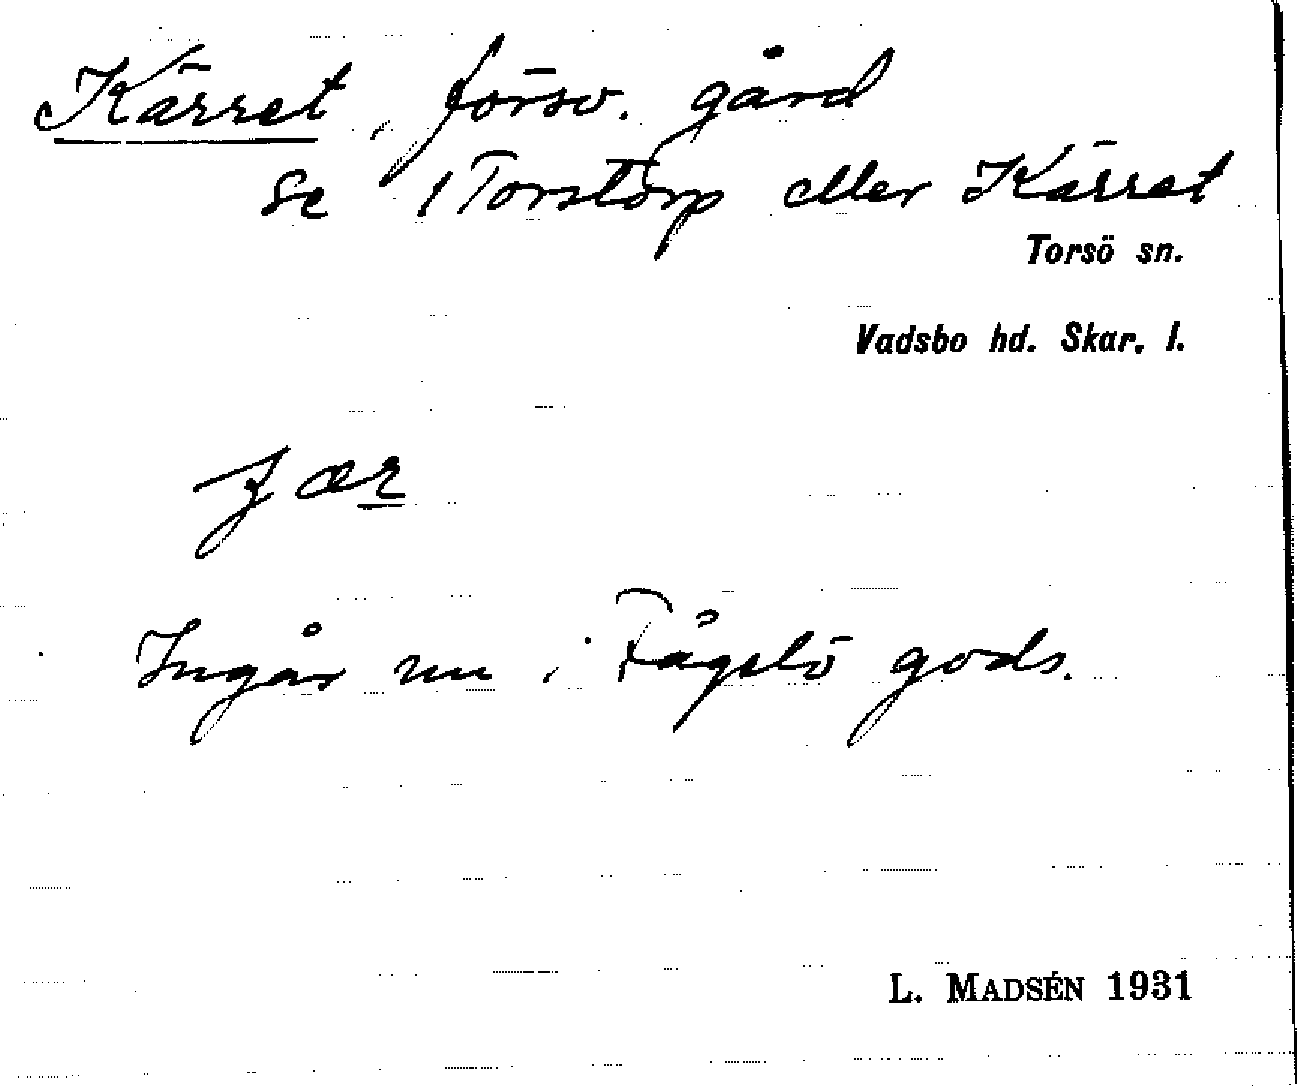 Kärret, försv. gård
se 1 Torstorp eller Kärret
Torsö sn.
Vadsbo hd. Skar. l.
Ingår nu i Fågelö gods.
L. MADSÉN 1931